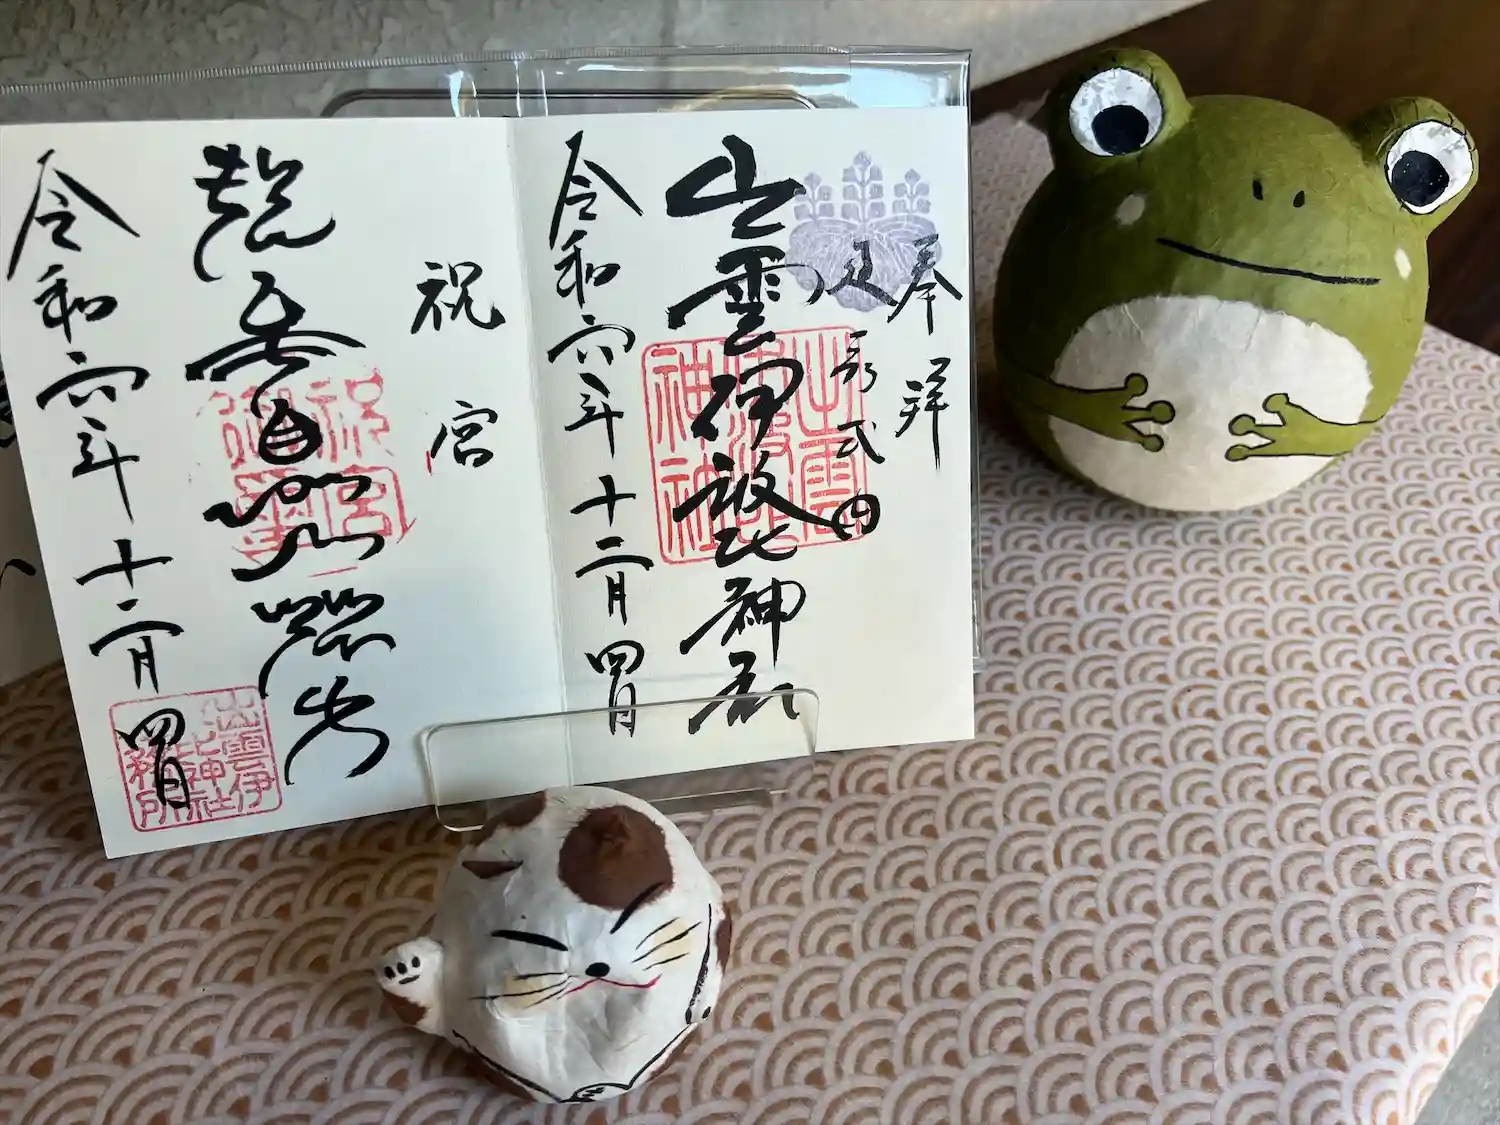 奉拝
延喜式内
出雲伊波比神社
出雲
伊波比
神社
令和六年十二月四日
祝宮
祝宮
御璽
令和六年十二月四日
出雲伊
波比神社
社務所